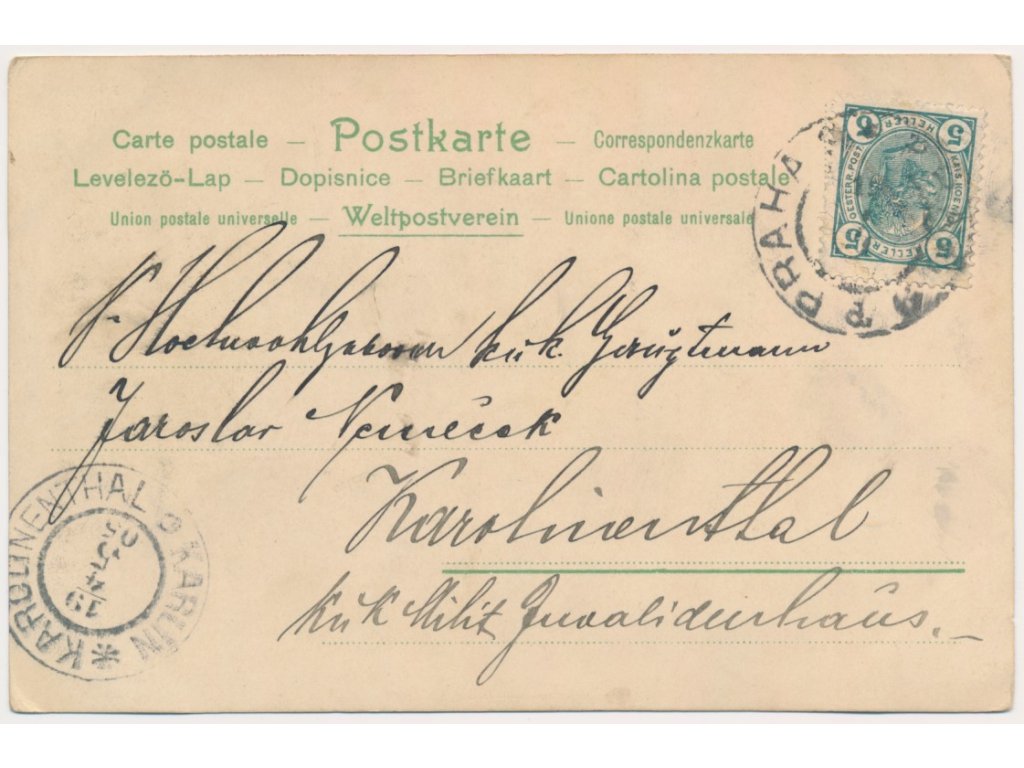 Carte postale — Postkarte — Correspondenzkarte
Levelezö-Lap — Dopisnice — Briefkaart — Cartolina postale
Union postale universelle — Weltpostverein — Unione postale universale
5 5 5 5
HELLER HELLER
OESTERR. POST
PRAHA
Hochwohlgeboren k.u.k. Hauptmann
Jaroslav Nemeček
Karolinenthal
K u K Milit Invalidenhaus.
KAROLINENTHAL 2 KARLÍN